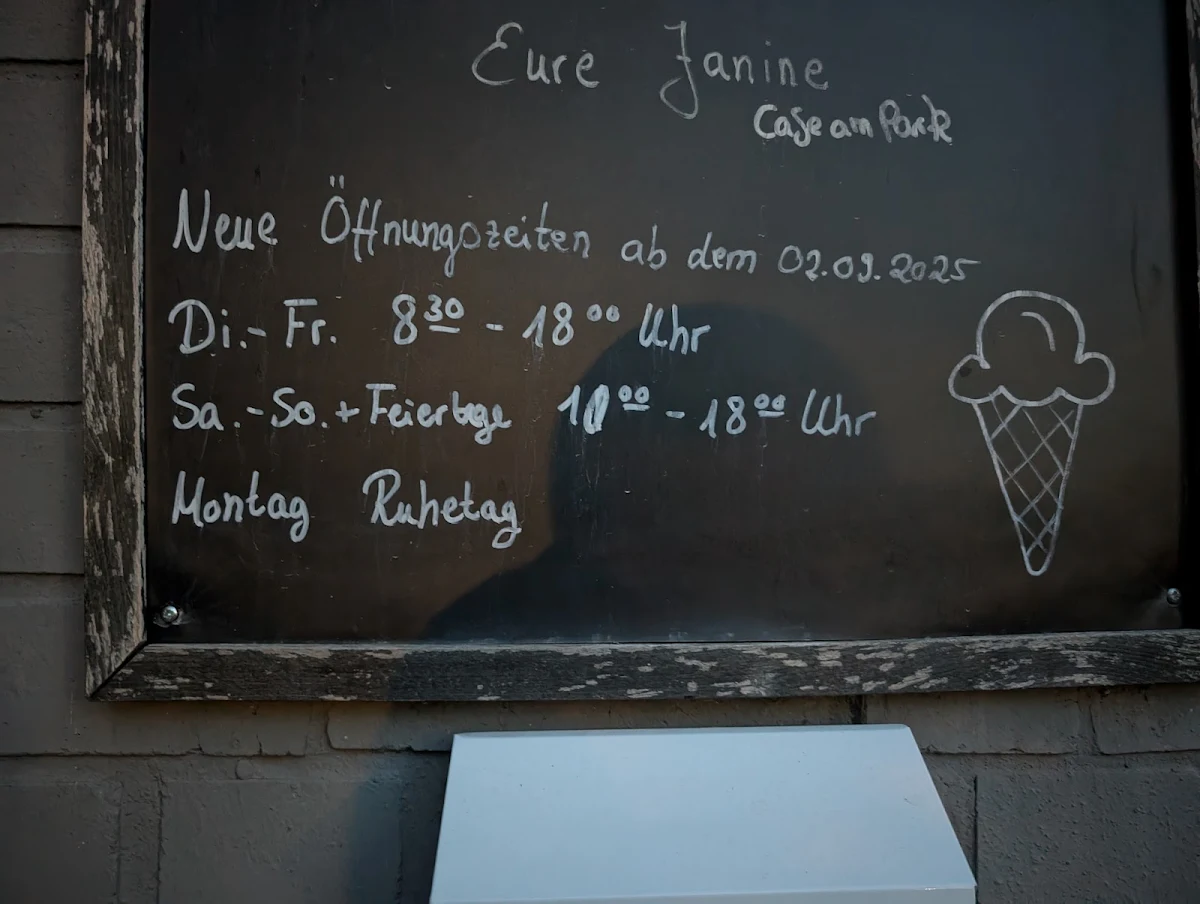 Eure Janine
Cafe am Park
Neue Öffnungszeiten ab dem 02.09.2025
Di.- Fr. 8³⁰ - 18⁰⁰ Uhr
Sa.-So.+Feiertage - 18⁰⁰ Uhr
Montag Ruhetag